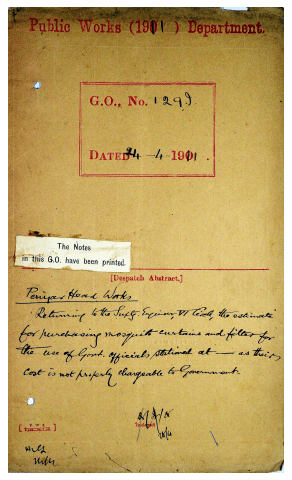 Public Works (1911) Department.
G.O., No. 129
DATED 24-4-1911.
The Notes
in this G.O. have been printed.
[Despatch Abstract.]
Periyar Head Works
Returning to the Supdg. Engineer VI Circle, the estimate
for purchasing mosquito curtains and filter for
the use of Govt. officials stationed at — as their
cost is not properly chargeable to Government.